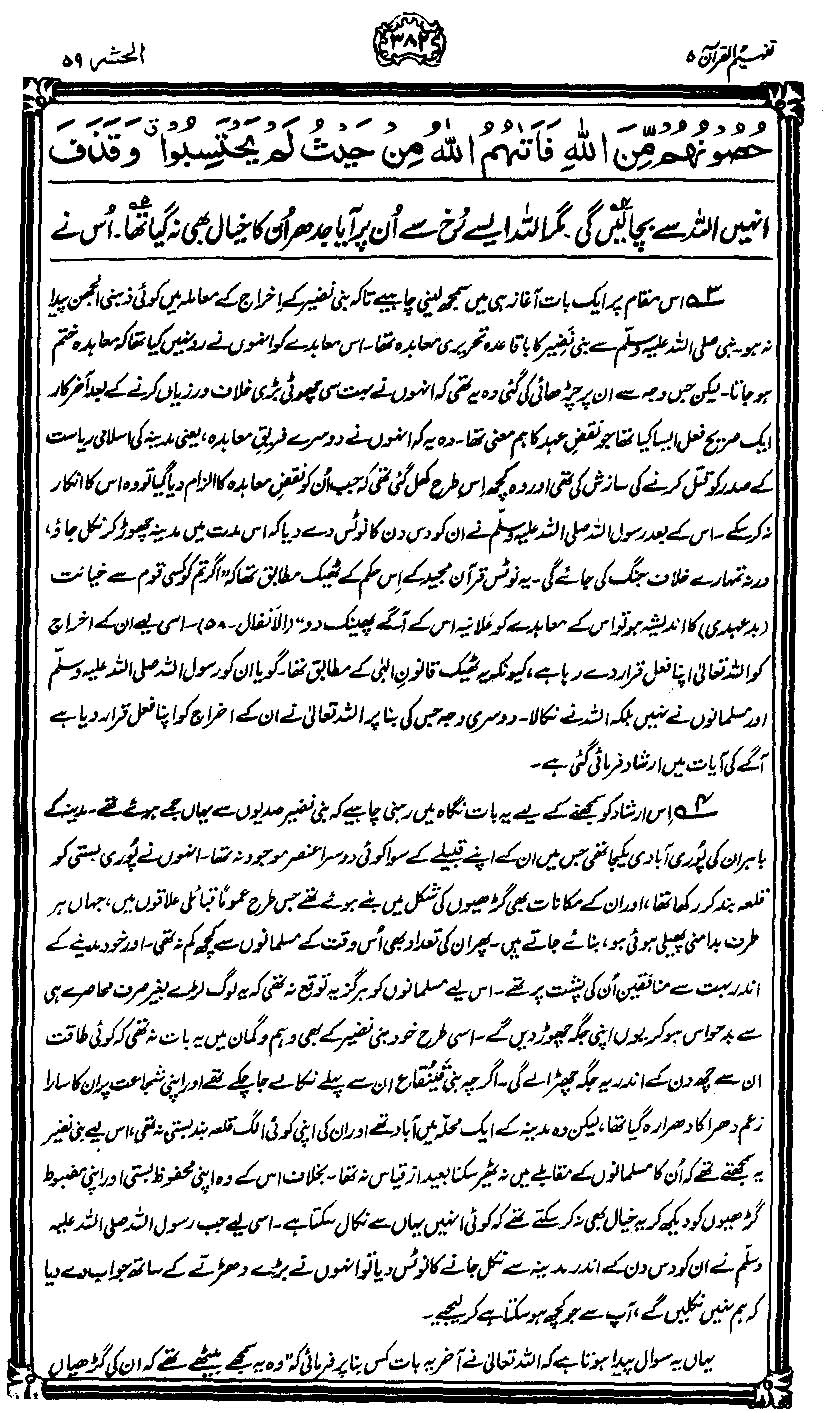 تفہیم القرآن ۵
۳۸۲
الحشر ۵۹
حُصُوْنُهُمْ مِّنَ اللّٰهِ فَاَتٰىهُمُ اللّٰهُ مِنْ حَيْثُ لَمْ يَحْتَسِبُوْا ۗ وَقَذَفَ
انہیں اللہ سے بچا لیں گی۔ مگر اللہ ایسے رُخ سے اُن پر آیا جدھر اُن کا خیال بھی نہ گیا تھا۔ اُس نے
۳ اس مقام پر ایک بات آغاز ہی میں سمجھ لینی چاہیے تاکہ بنی نضیر کے اِخراج کے معاملہ میں کوئی ذہنی الجھن پیدا
نہ ہو۔ نبی صلی اللہ علیہ وسلّم سے بنی نَضِیر کا باقاعدہ تحریری معاہدہ تھا۔ اس معاہدے کو انہوں نے رد نہیں کیا تھا کہ معاہدہ ختم
ہو جاتا۔ لیکن جس وجہ سے ان پر چڑھائی کی گئی وہ یہ تھی کہ انہوں نے بہت سی چھوٹی بڑی خلاف ورزیاں کرنے کے بعد آخرکار
ایک صریح فعل ایسا کیا تھا جو نقضِ عہد کا ہم معنی تھا۔ وہ یہ کہ انہوں نے دوسرے فریقِ معاہدہ، یعنی مدینہ کی اسلامی ریاست
کے صدر کو قتل کرنے کی سازش کی تھی اور وہ کچھ اِس طرح کھل گئی تھی کہ جب اُن کو نقضِ معاہدہ کا الزام دیا گیا تو وہ اس کا انکار
نہ کر سکے۔ اس کے بعد رسول اللہ صلی اللہ علیہ وسلّم نے ان کو دس دن کا نوٹس دے دیا کہ اس مدت میں مدینہ چھوڑ کر نکل جاؤ،
ورنہ تمہارے خلاف جنگ کی جائے گی۔ یہ نوٹس قرآن مجید کے اِس حکم کے ٹھیک مطابق تھا کہ "اگر تم کو کسی قوم سے خیانت
(بدعہدی) کا اندیشہ ہو تو اس کے معاہدے کو علانیہ اس کے آگے پھینک دو" (الاَنفال۔ ۵۸)۔ اسی لیے ان کے اخراج
کو اللہ تعالیٰ اپنا فعل قرار دے رہا ہے، کیونکہ یہ ٹھیک قانونِ الٰہی کے مطابق تھا۔ گویا ان کو رسول اللہ صلی اللہ علیہ وسلّم
اور مسلمانوں نے نہیں بلکہ اللہ نے نکالا۔ دوسری وجہ جس کی بنا پر اللہ تعالیٰ نے ان کے اخراج کو اپنا فعل قرار دیا ہے
آگے کی آیات میں ارشاد فرمائی گئی ہے۔
۴ اِس ارشاد کو سمجھنے کے لیے یہ بات نگاہ میں رہنی چاہیے کہ بنی نضیر صدیوں سے یہاں جمے ہوئے تھے۔ مدینہ کے
باہر ان کی پُوری آبادی یکجا تھی جس میں ان کے اپنے قبیلے کے سوا کوئی دوسرا عنصر موجود نہ تھا۔ انہوں نے پُوری بستی کو
قلعہ بند کر رکھا تھا، اور ان کے مکانات بھی گڑھیوں کی شکل میں بنے ہوئے تھے جس طرح عموماً قبائلی علاقوں میں، جہاں ہر
طرف بدامنی پھیلی ہوئی ہو، بنائے جاتے ہیں۔ پھر ان کی تعداد بھی اُس وقت کے مسلمانوں سے کچھ کم نہ تھی۔ اور خود مدینے کے
اندر بہت سے منافقین اُن کی پشت پر تھے۔ اس لیے مسلمانوں کو ہرگز یہ توقع نہ تھی کہ یہ لوگ لڑے بغیر صرف محاصرے ہی
سے بدحواس ہو کر یوں اپنی جگہ چھوڑ دیں گے۔ اسی طرح خود بنی نضیر کے بھی وہم و گمان میں یہ بات نہ تھی کہ کوئی طاقت
ان سے چھ دن کے اندر یہ جگہ چھڑا لے گی۔ اگرچہ بنی قَینُقاع ان سے پہلے نکالے جا چکے تھے اور اپنی شجاعت پر ان کا سارا
زعم دھرا کا دھرا رہ گیا تھا، لیکن وہ مدینہ کے ایک محلہ میں آباد تھے اور ان کی اپنی کوئی الگ قلعہ بند بستی نہ تھی، اس لیے بنی نضیر
یہ سمجھتے تھے کہ اُن کا مسلمانوں کے مقابلے میں نہ ٹھیر سکنا بعید از قیاس نہ تھا۔ بخلاف اس کے وہ اپنی محفوظ بستی اور اپنی مضبوط
گڑھیوں کو دیکھ کر یہ خیال بھی نہ کر سکتے تھے کہ کوئی انہیں یہاں سے نکال سکتا ہے۔ اسی لیے جب رسول اللہ صلی اللہ علیہ
وسلّم نے ان کو دس دن کے اندر مدینہ سے نکل جانے کا نوٹس دیا تو انہوں نے بڑے دھڑلّے کے ساتھ جواب دے دیا
کہ ہم نہیں نکلیں گے، آپ سے جو کچھ ہو سکتا ہے کر لیجیے۔
یہاں یہ سوال پیدا ہوتا ہے کہ اللہ تعالیٰ نے آخر یہ بات کس بنا پر فرمائی کہ "وہ یہ سمجھے بیٹھے تھے کہ ان کی گڑھیاں